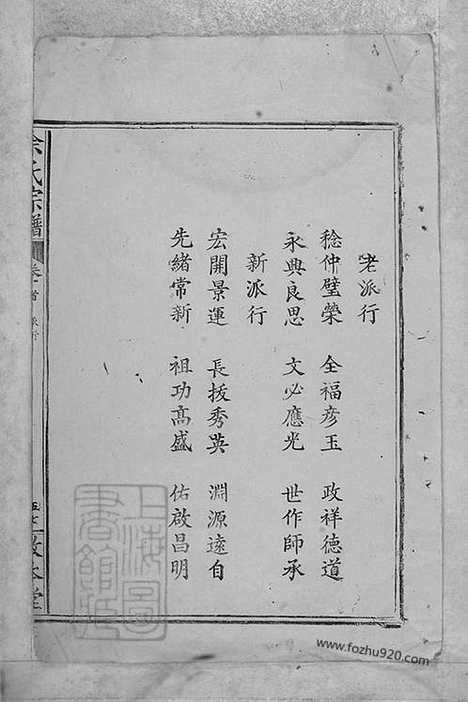 老派行
稔仲璧榮 全福彥玉 政祥德道
永興良思 文必應光 世作師承
新派行
宏開景運 長拔秀英 淵源遠自
先緒常新 祖功高盛 佑啟昌明
余氏宗譜 卷首 派行
敦本堂
上海圖書館藏
www.fozhu920.com